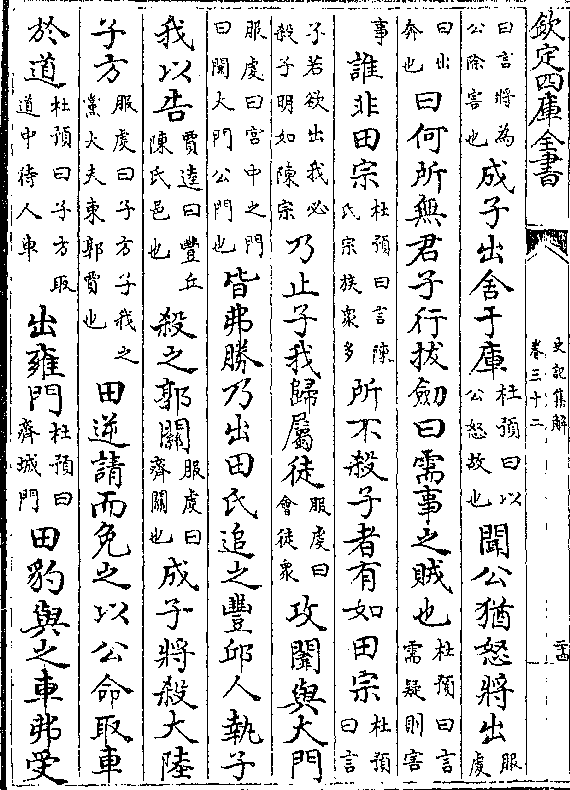 欽定四庫全書
史記集解
卷三十二
二十四
曰言將為
公除害也
成子出舍于庫
杜預曰以
公怒故也
聞公猶怒將出
服
虔
曰出
奔也
曰何所無君子行拔劍曰需事之賊也
杜預曰言
需疑則害
事
誰非田宗
杜預曰言陳
氏宗族衆多
所不殺子者有如田宗
杜預
曰言
子若欲出我必
殺子明如陳宗
乃止子我歸屬徒
服虔曰
會徒衆
攻闈與大門
服虔曰宮中之門
曰闈大門公門也
皆弗勝乃出田氏追之豐邱人執子
我以告
賈逵曰豐丘
陳氏邑也
殺之郭關
服虔曰
齊關也
成子將殺大陸
子方
服虔曰子方子我之
黨大夫東郭賈也
田逆請而免之以公命取車
於道
杜預曰子方取
道中待人車
出雍門
杜預曰
齊城門
田豹與之車弗受